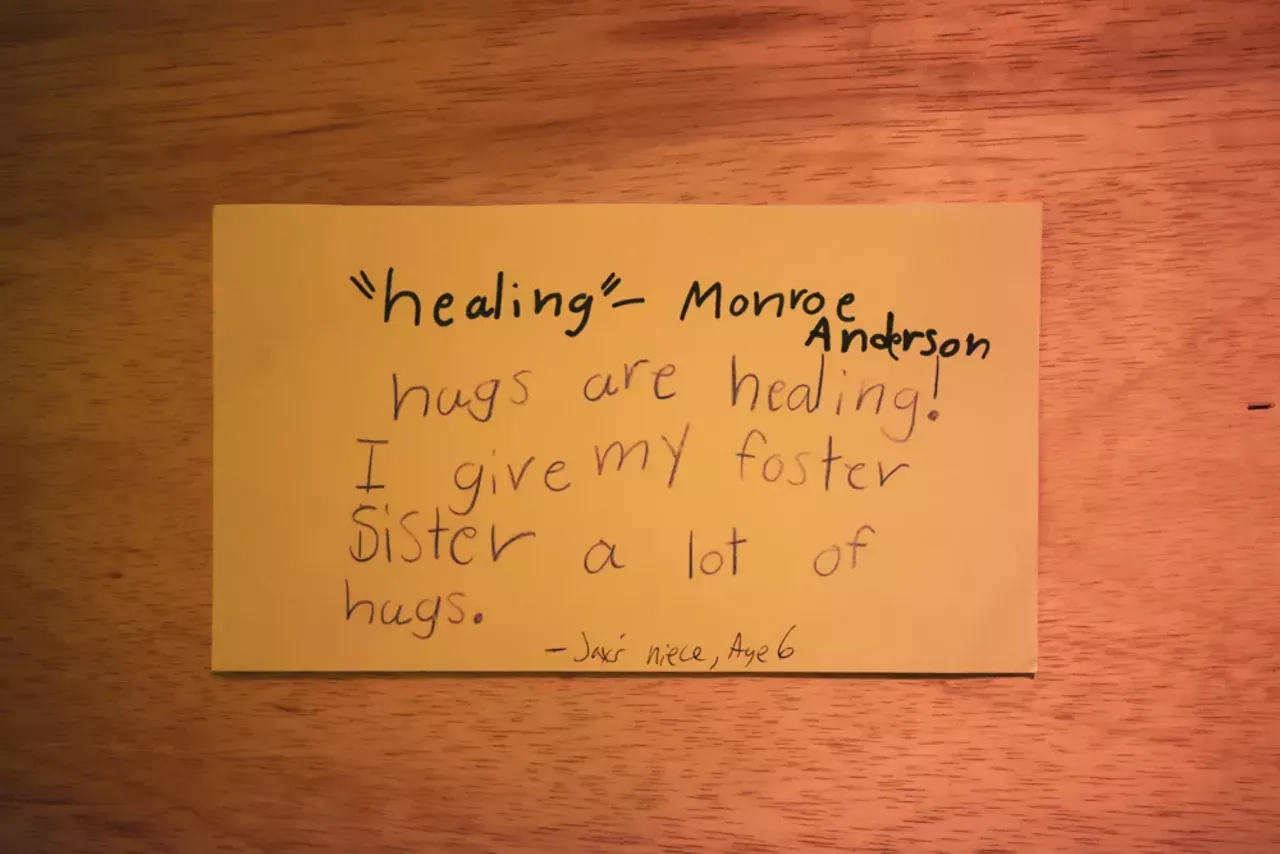 "healing" - Monroe
Anderson
hugs are healing!
I give my foster
Sister a lot of
hugs.
- Jax's niece, Age 6